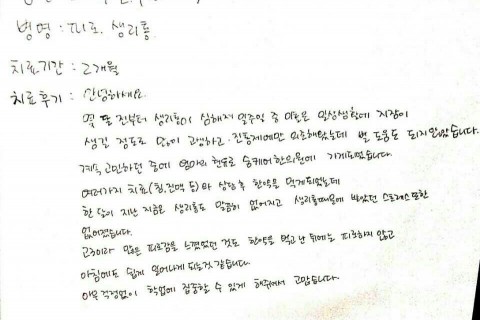 병명 : 피로, 생리통.
치료기간 : 2개월
치료후기 : 안녕하세요.
몇 달 전부터 생리통이 심해져 일주일 중 이틀은 일상생활에 지장이
생길 정도로 많이 고생하고, 진통제에만 의존해왔는데 별 도움도 되지 않았습니다.
계속 고민하던 중에 엄마의 권유로 숨케어한의원에 가게되었습니다.
여러가지 치료(침, 전맥 등)와 상담 후 한약을 먹게되었는데
한 달이 지난 지금은 생리통도 말끔히 없어지고 생리통때문에 받았던 스트레스 또한
없어졌습니다.
고3이라 많은 피로감을 느꼈었던 것도 한약을 먹고 난 뒤에는 피로하지 않고
아침에도 쉽게 일어나게 되는것 같습니다.
아무 걱정없이 학업에 집중할 수 있게 해주셔서 고맙습니다.